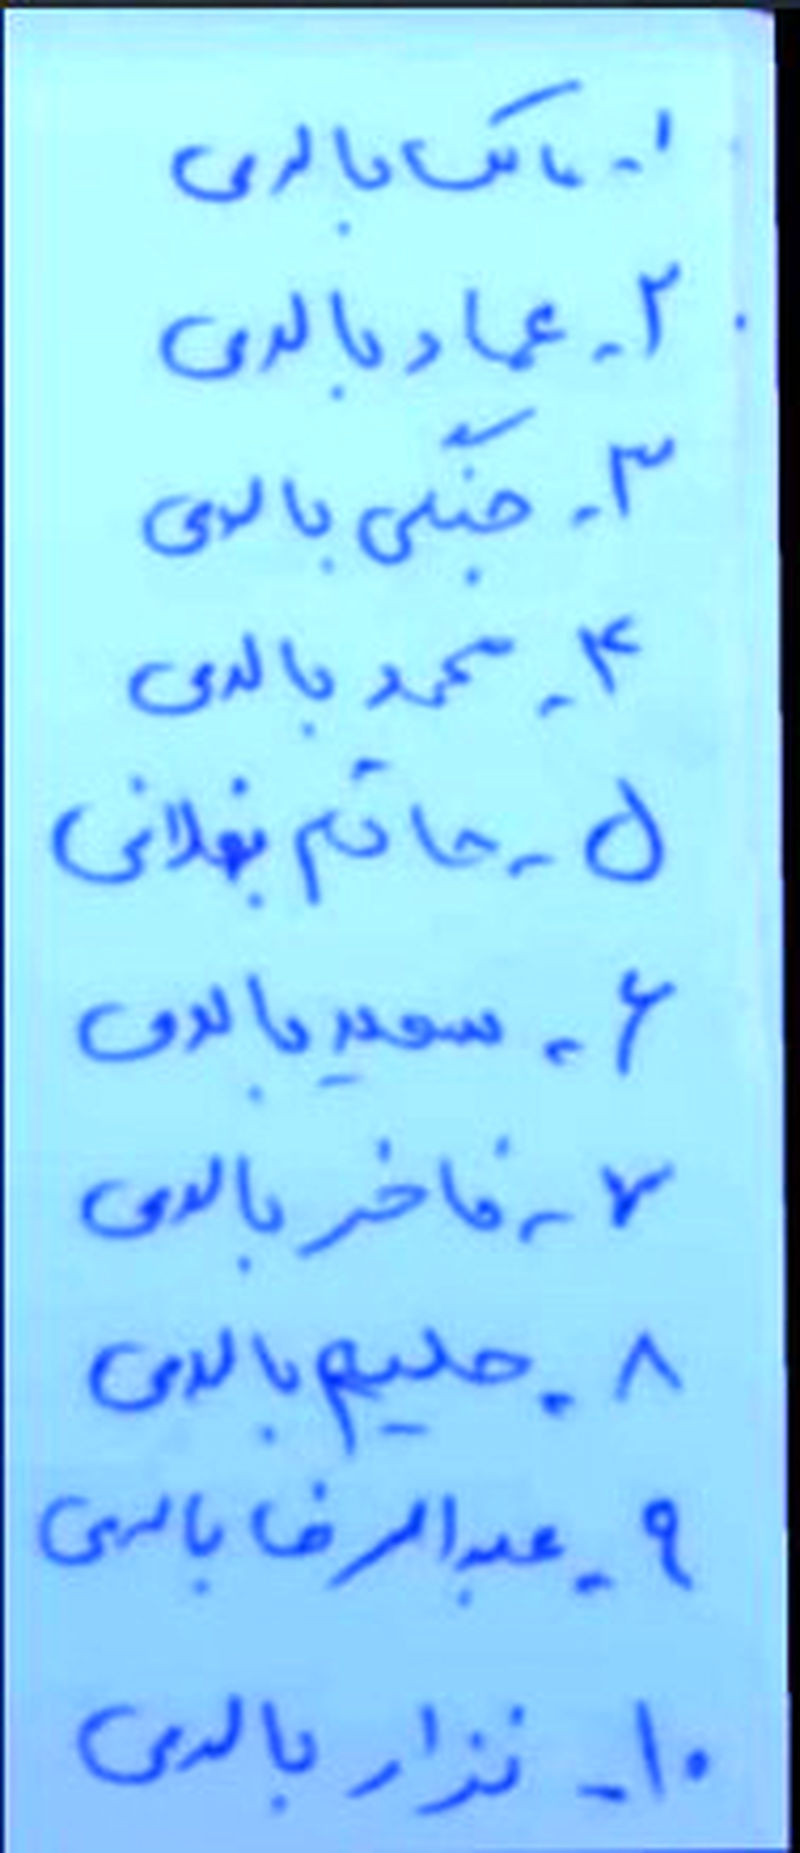 ۱- مالک بالدی
۲- عماد بالدی
۳- جنگی بالدی
۴- محمد بالدی
۵- حاتم بغلانی
۶- سعید بالدی
۷- فاخر بالدی
۸- حلیم بالدی
۹- عبدالرضا بالدی
۱۰- نزار بالدی